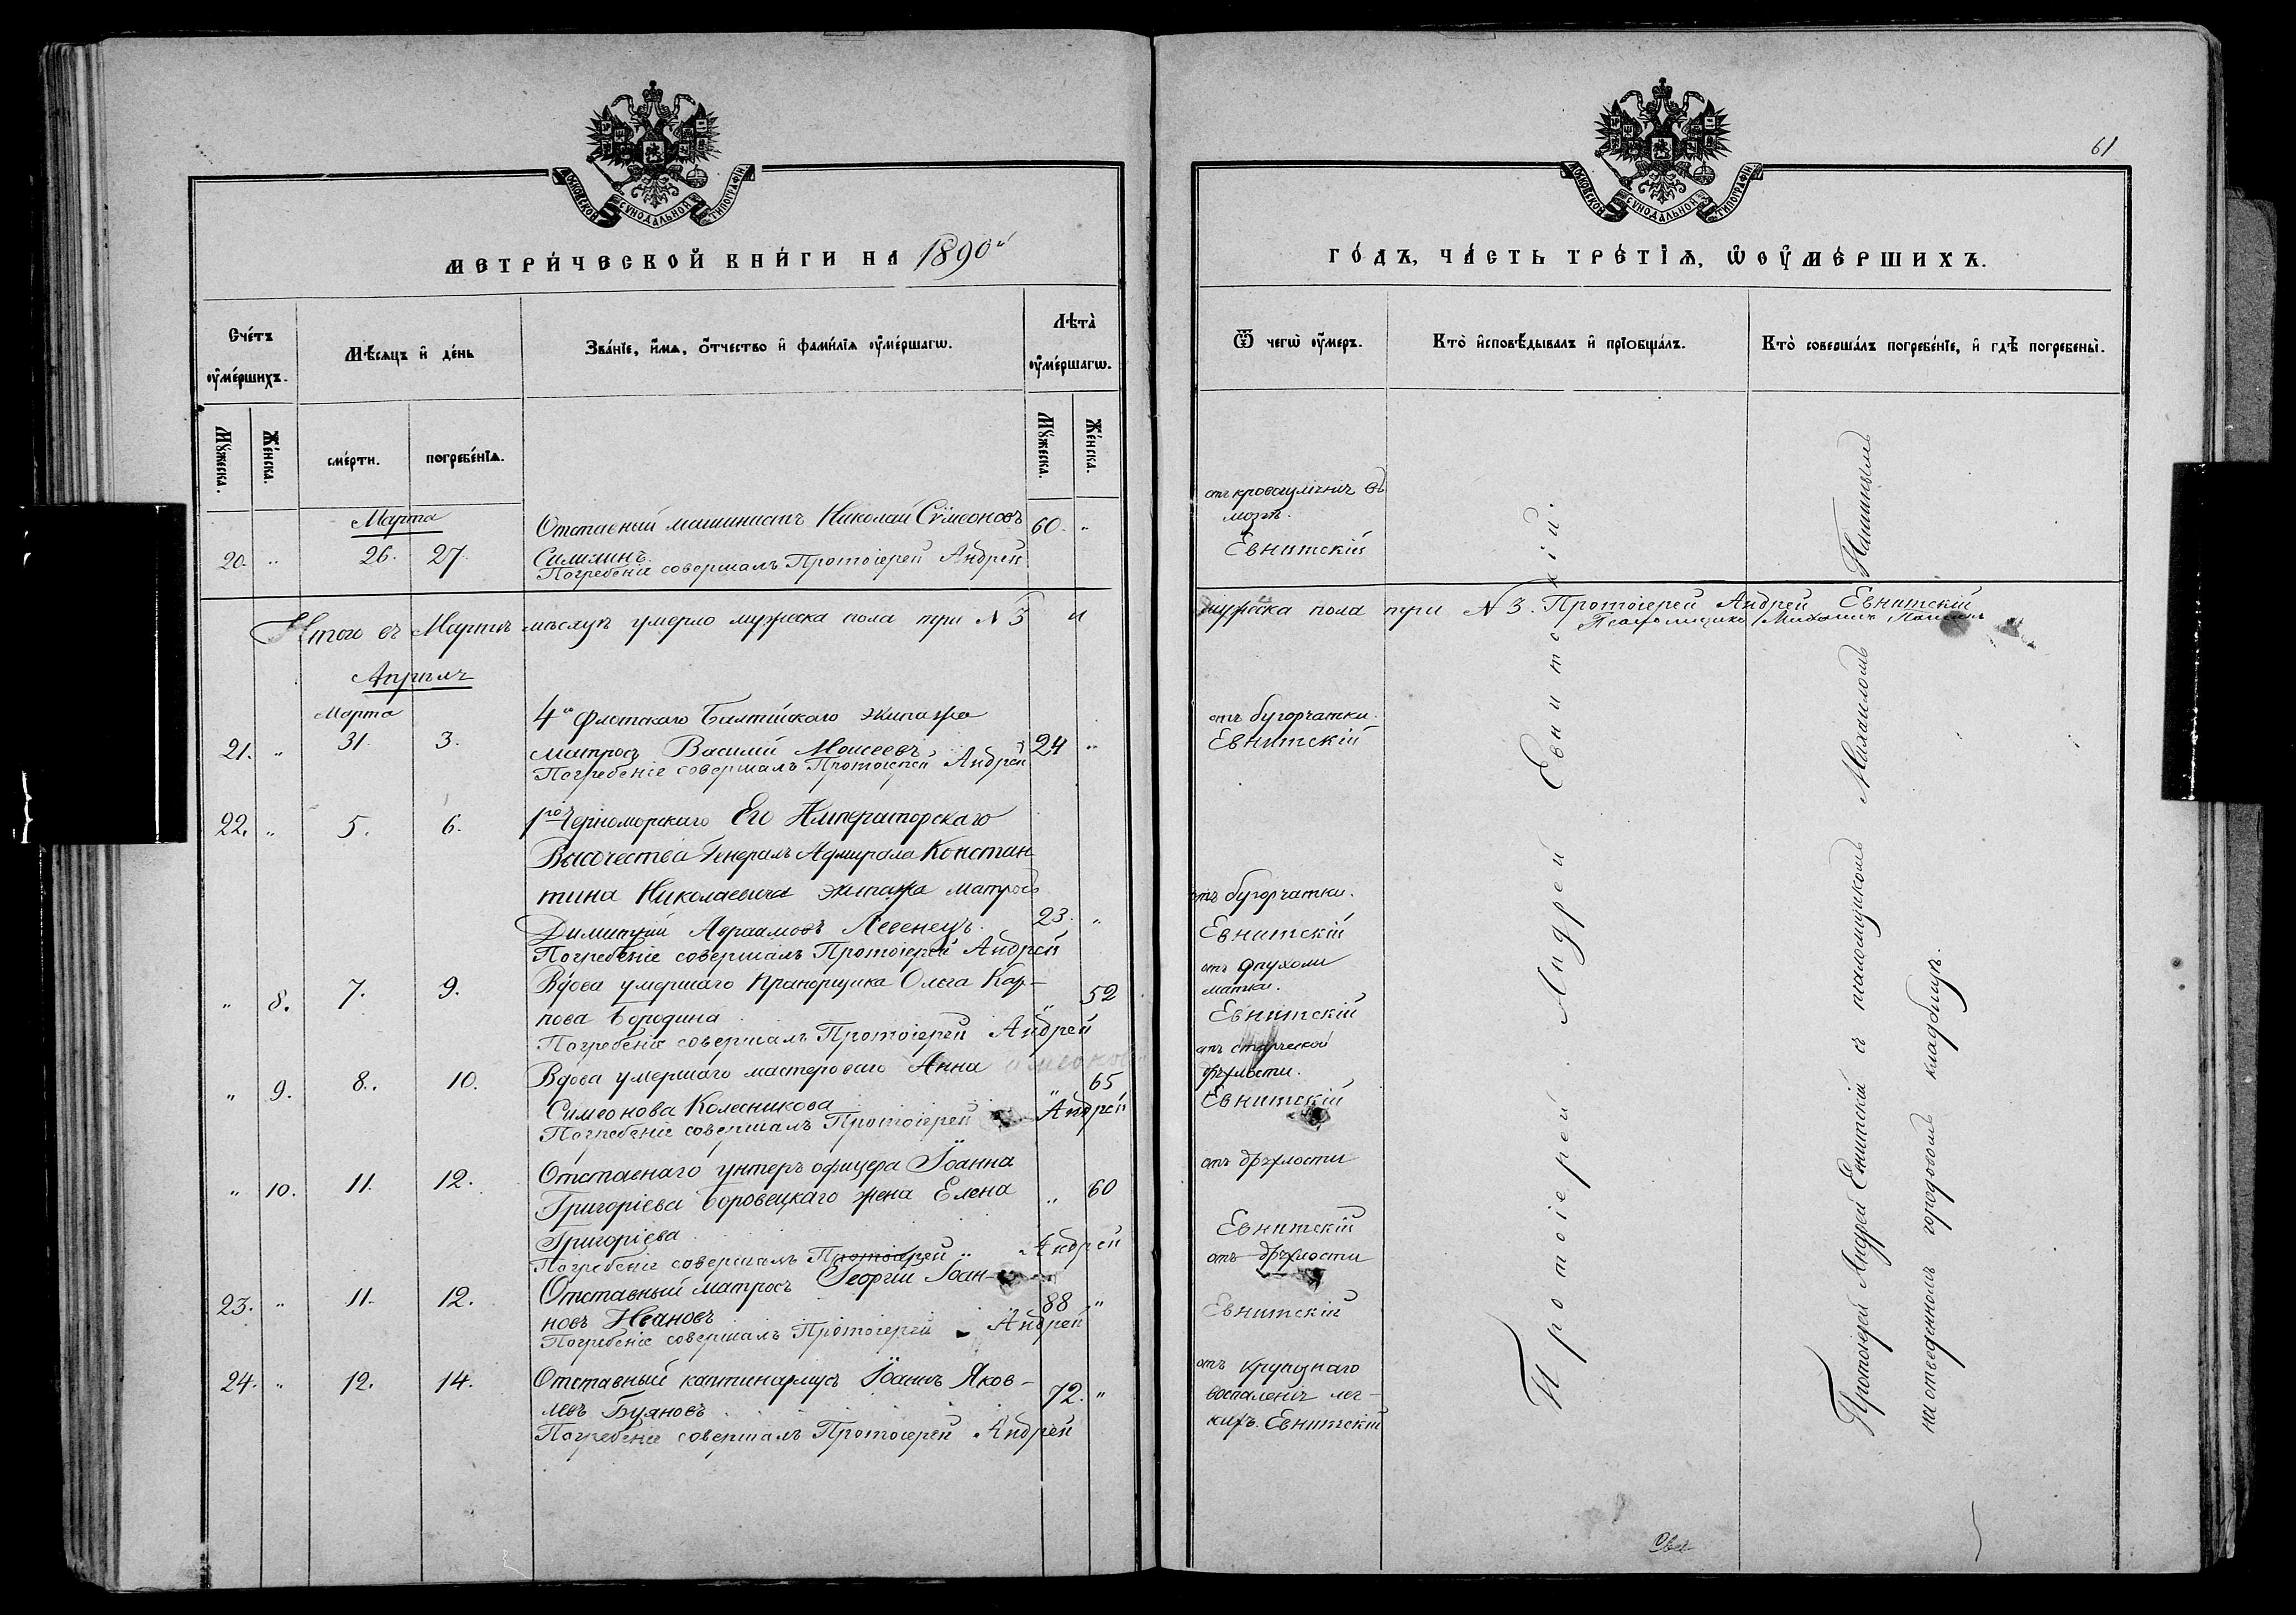 МОСКОВСКОЙ СѴНОДАЛЬНОЙ ТИПОГРАФІИ
МЕТРИЧЕСКОЙ КНИГИ НА 1890й
Счетъ оумершихъ.
Мѣсяцъ и день
Званіе, имя, отчество и фамилія оумершагѡ.
Лѣта оумершагѡ.
Мужеска.
Женска.
смерти.
погребенія.
Мужеска.
Женска.
Марта
20. " 26. 27. Отставный машинистъ Николай Сѵмеоновъ 60. "
Погребеніе совершалъ Протоіерей Андрей
Итого въ Мартѣ мѣсяцѣ умерло мужеска пола три № 3 и
Апрѣль
Марта
4го Флотскаго Балтійскаго экипажа
21. " 31. 3. матросъ Василій Моисеевъ 24 "
Погребеніе совершалъ Протоіерей Андрей
22. " 5. 6. 1го Черноморскаго Его Императорскаго
Высочества Генералъ Адмирала Констан
тина Николаевича экипажа матросъ
Димитрій Авраамовъ Левенецъ. 23. "
Погребеніе совершалъ Протоіерей Андрей
" 8. 7. 9. Вдова умершаго Прапорщика Ольга Кар-
пова Бородина " 52
Погребеніе совершалъ Протоіерей Андрей
" 9. 8. 10. Вдова умершаго мастероваго Анна
Симеонова Колесникова " 65
Погребеніе совершалъ Протоіерей Андрей
" 10. 11. 12. Отставнаго унтеръ офицера Іоанна
Григоріева Боровецкаго жена Елена " 60
Григоріева
Погребеніе совершалъ Протоіерей Андрей
23. " 11. 12. Отставный матросъ Георгій Іоан-
новъ Ивановъ 88 "
Погребеніе совершалъ Протоіерей Андрей
24. " 12. 14. Отставный каптинармусъ Іоаннъ Яков-
левъ Буяновъ 72. "
Погребеніе совершалъ Протоіерей Андрей
61
МОСКОВСКОЙ СѴНОДАЛЬНОЙ ТИПОГРАФІИ
ГОДЪ, ЧАСТЬ ТРЕТІЯ, Ѡ ОУМЕРШИХЪ.
Ѿ чегѡ оумеръ.
Кто исповѣдывалъ и пріобщалъ.
Кто совершалъ погребеніе, и гдѣ погребены.
отъ кровоизліянія въ
мозгъ.
Евнитскій
мужеска пола три № 3. Протоіерей Андрей Евнитскій
Псаломщикъ Михаилъ
отъ бугорчатки.
Евнитскій
отъ бугорчатки.
Евнитскій
отъ опухоли
матки.
Евнитскій
отъ старческой
дряхлости.
Евнитскій
отъ дряхлости
Евнитскій
отъ дряхлости
Евнитскій
отъ крупознаго
воспаленія лег-
кихъ. Евнитскій
Протоіерей Андрей Евнитскій.
Протоіерей Андрей Евнитскій съ псаломщикомъ Михаиломъ
на отведенномъ городовомъ кладбищѣ.